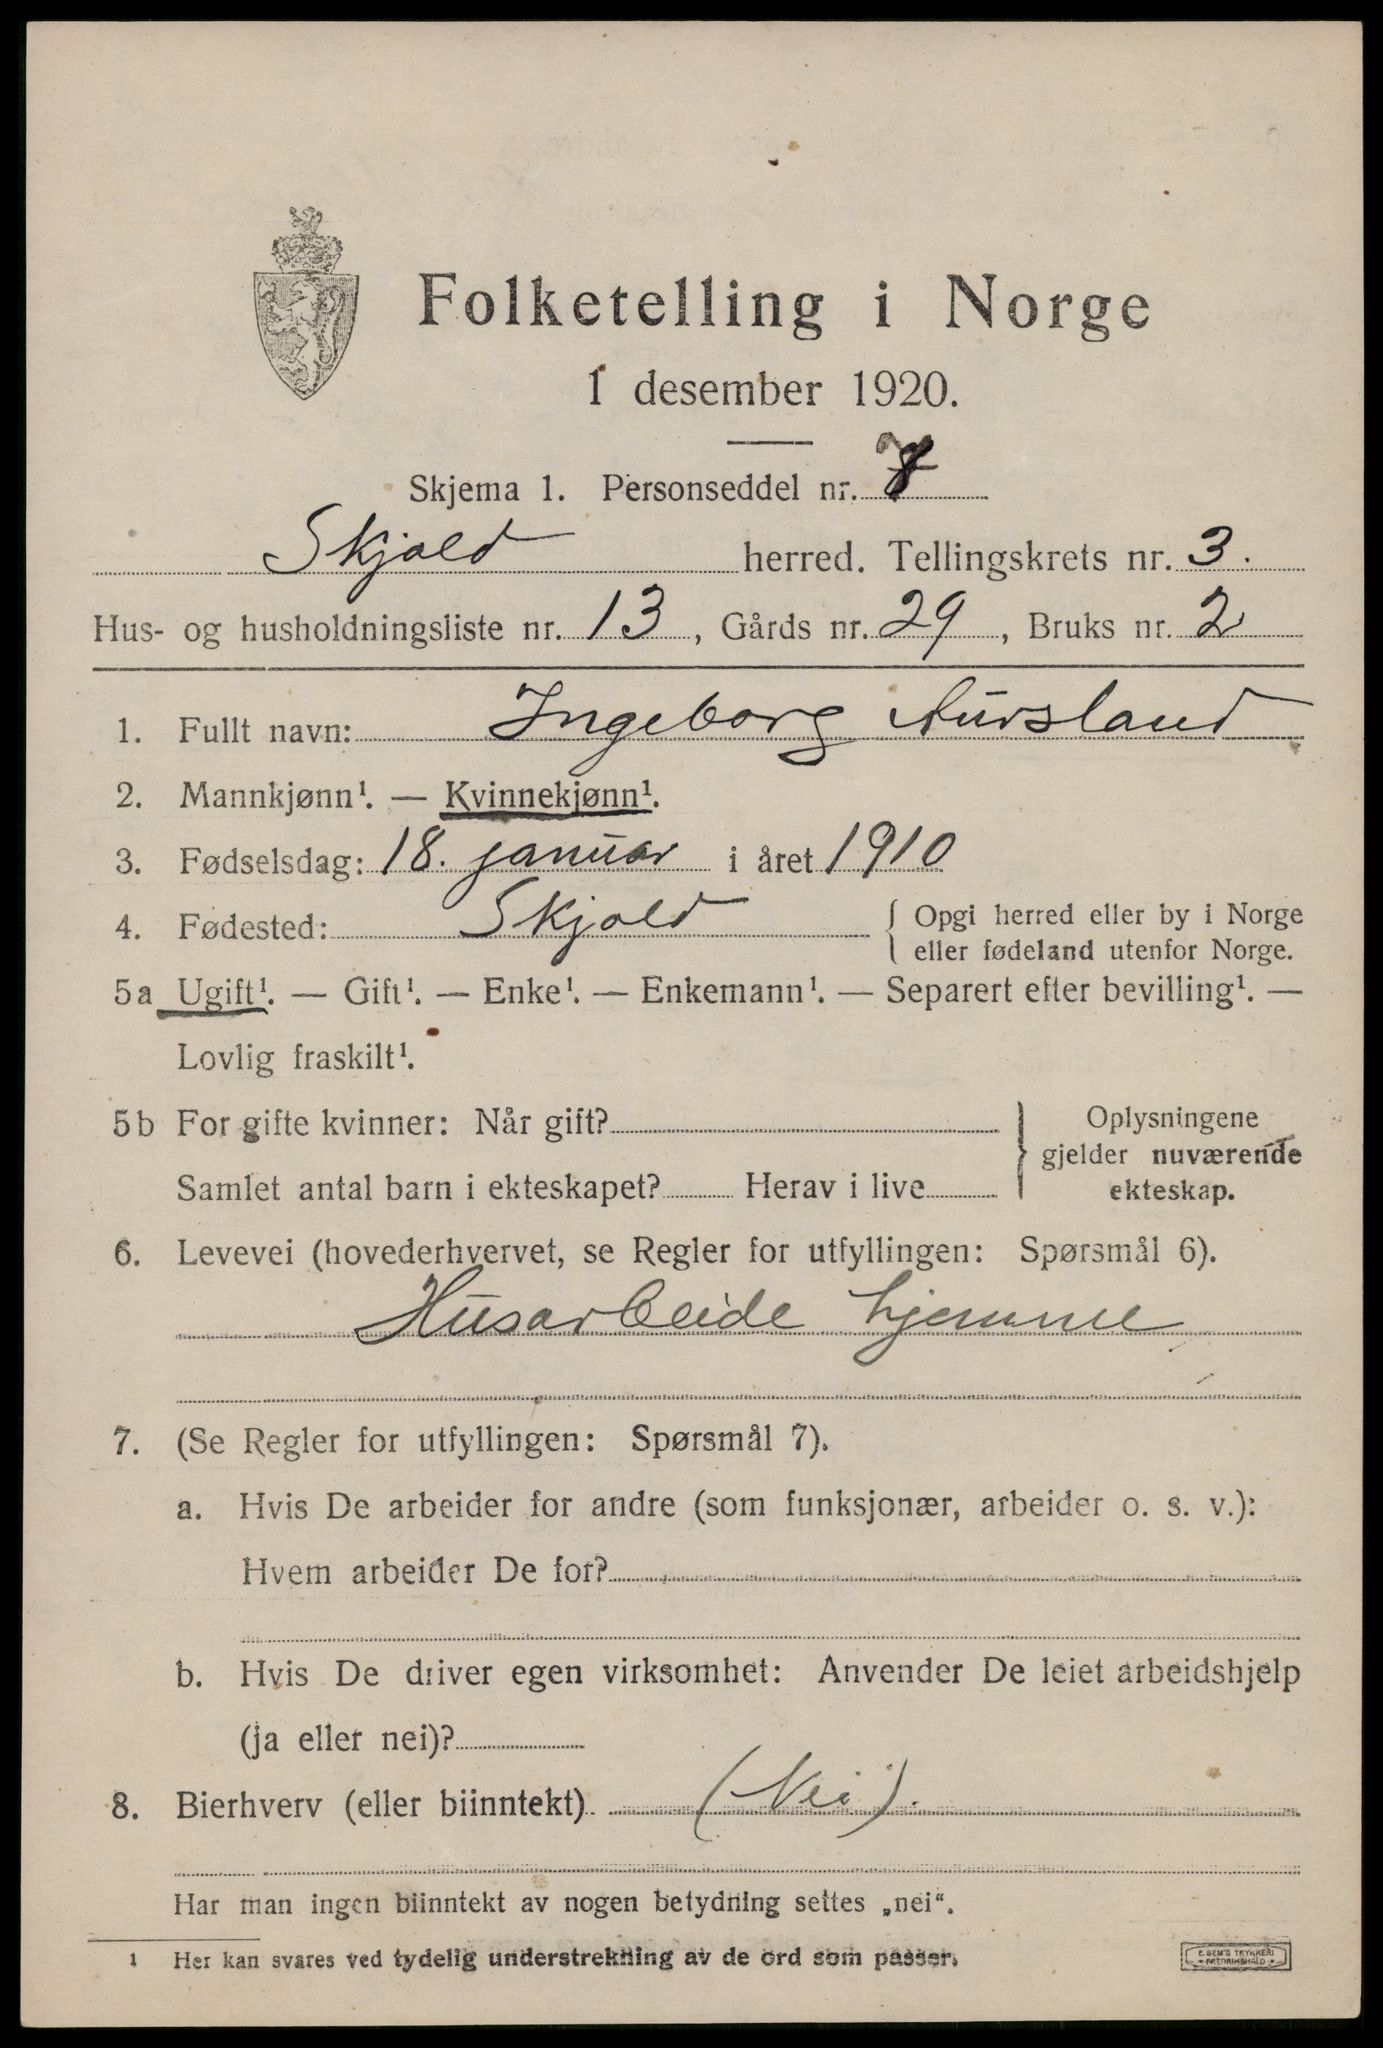 Folketelling i Norge
1 desember 1920.
Skjema 1. Personseddel nr. 8
Skjold herred. Tellingskrets nr. 3.
Hus- og husholdningsliste nr. 13, Gårds nr. 29, Bruks nr. 2
1. Fullt navn: Ingeborg Aursland
2. Mannkjønn¹. — Kvinnekjønn¹.
3. Fødselsdag: 18. januar i året 1910
4. Fødested: Skjold { Opgi herred eller by i Norge
eller fødeland utenfor Norge.
5a Ugift¹. — Gift¹. — Enke¹. — Enkemann¹. — Separert efter bevilling¹. —
Lovlig fraskilt¹.
5b For gifte kvinner: Når gift? } Oplysningene
gjelder nuværende
Samlet antal barn i ekteskapet? Herav i live ekteskap.
6. Levevei (hovederhvervet, se Regler for utfyllingen: Spørsmål 6).
Husarbeide hjemme
7. (Se Regler for utfyllingen: Spørsmål 7).
a. Hvis De arbeider for andre (som funksjonær, arbeider o. s. v.):
Hvem arbeider De for?
b. Hvis De driver egen virksomhet: Anvender De leiet arbeidshjelp
(ja eller nei)?
8. Bierhverv (eller biinntekt) (Nei).
Har man ingen biinntekt av nogen betydning settes „nei“.
1 Her kan svares ved tydelig understrekning av de ord som passer.
E. SEM'S TRYKKERI
FREDRIKSHALD